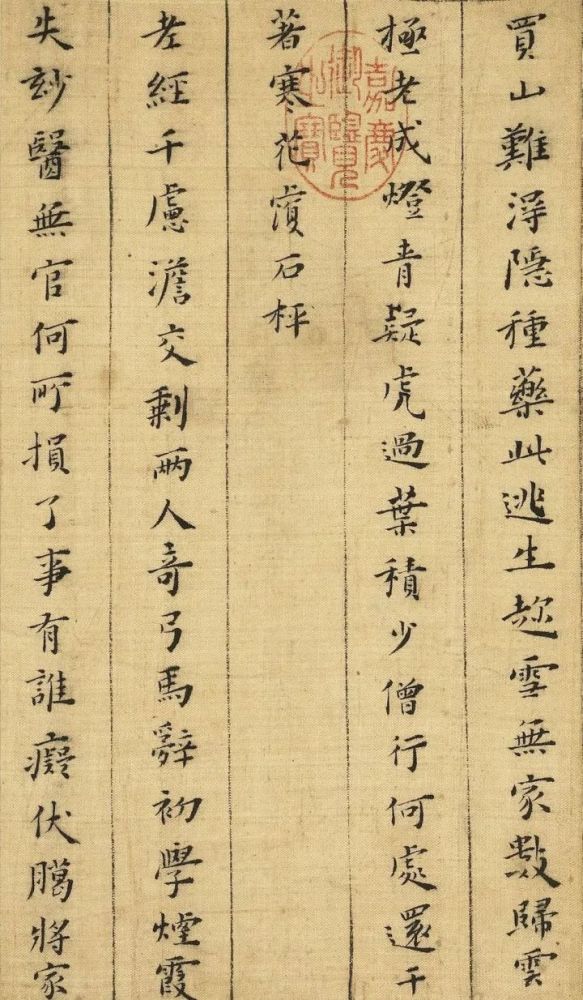 買山難淂隱種藥此逃生趂雪無家數歸雲
極老成燈青疑虎過葉積少僧行何處還千
著寒花石枰
老經千慮澹交剩兩人奇弓馬辭初學煙霞
失玅醫無官何所損了事有誰癡伏臈將家
嘉慶御覽之寶